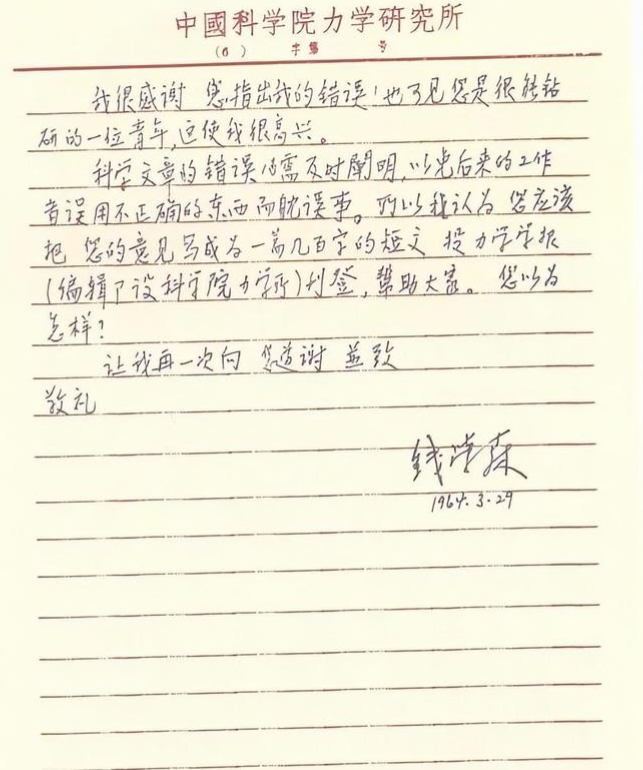 中國科学院力学研究所
( ) 字第 号
我很感谢 您指出我的错误！也可见您是很能钻
研的一位青年,这使我很高兴。
科学文章的错误必需及时阐明,以免后来的工作
者误用不正确的东西而耽误事。所以我认为 您应该
把 您的意见写成为一篇几百字的短文 投力学学报
(编辑部设科学院力学所)刊登,帮助大家。 您以为
怎样?
让我再一次向 您道谢 並致
敬礼
钱学森
1964.3.29